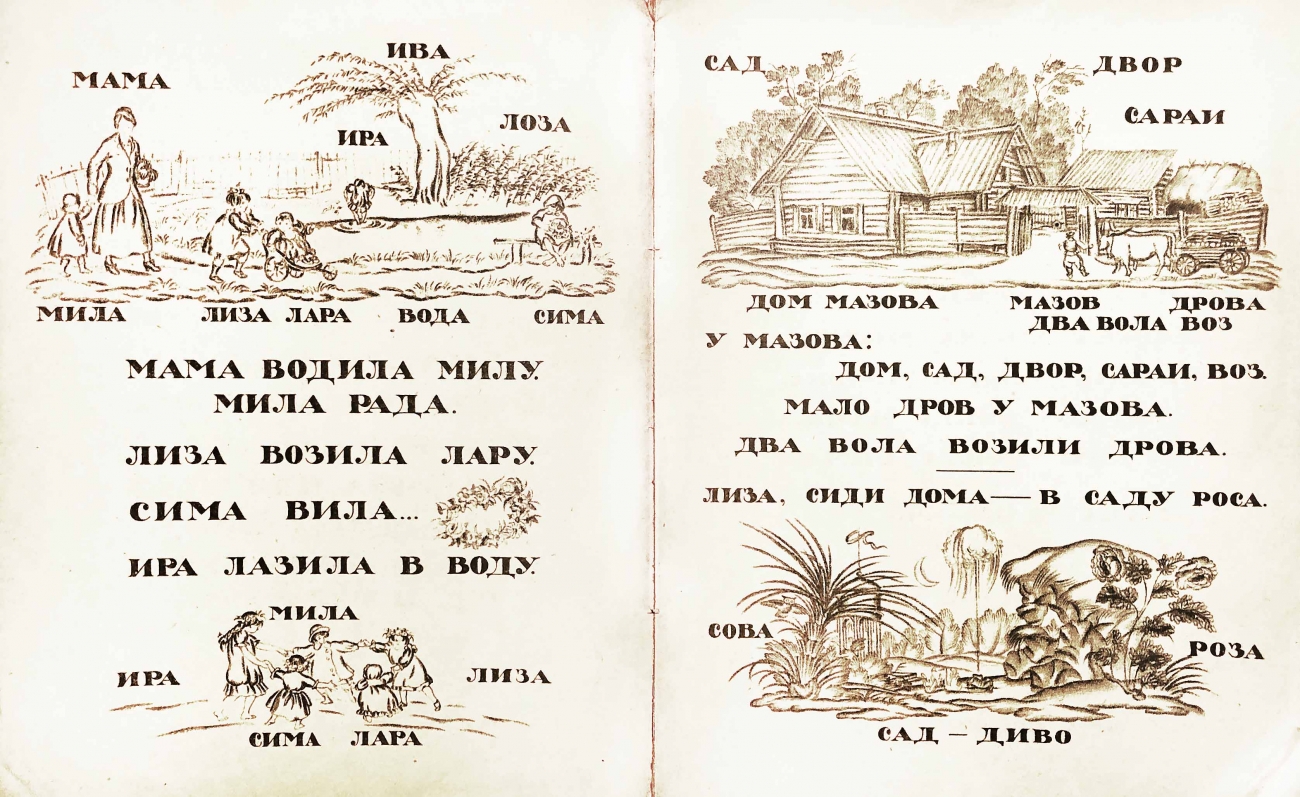 ИВА
МАМА
ИРА
ЛОЗА
МИЛА ЛИЗА ЛАРА ВОДА СИМА
МАМА ВОДИЛА МИЛУ.
МИЛА РАДА.
ЛИЗА ВОЗИЛА ЛАРУ.
СИМА ВИЛА...
ИРА ЛАЗИЛА В ВОДУ.
МИЛА
ИРА
ЛИЗА
СИМА ЛАРА
САД
ДВОР
САРАИ
ДОМ МАЗОВА МАЗОВ ДРОВА
ДВА ВОЛА ВОЗ
У МАЗОВА:
ДОМ, САД, ДВОР, САРАИ, ВОЗ.
МАЛО ДРОВ У МАЗОВА.
ДВА ВОЛА ВОЗИЛИ ДРОВА.
ЛИЗА, СИДИ ДОМА — В САДУ РОСА.
СОВА
РОЗА
САД — ДИВО